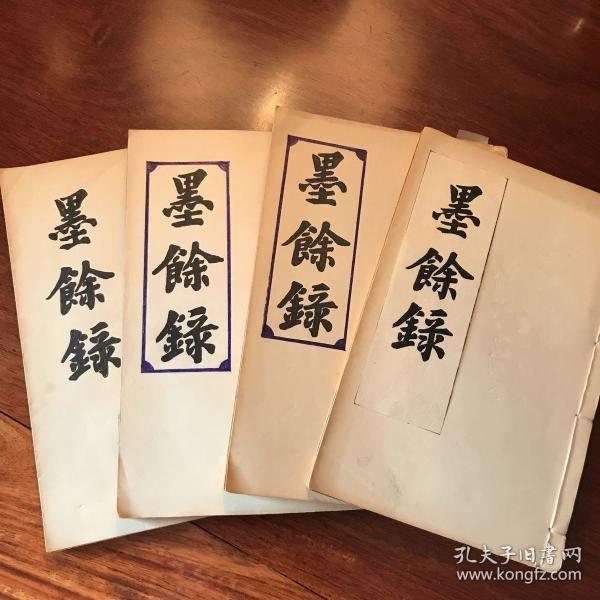 墨餘錄
墨餘錄
墨餘錄
墨餘錄
孔夫子旧書网
www.kongfz.com